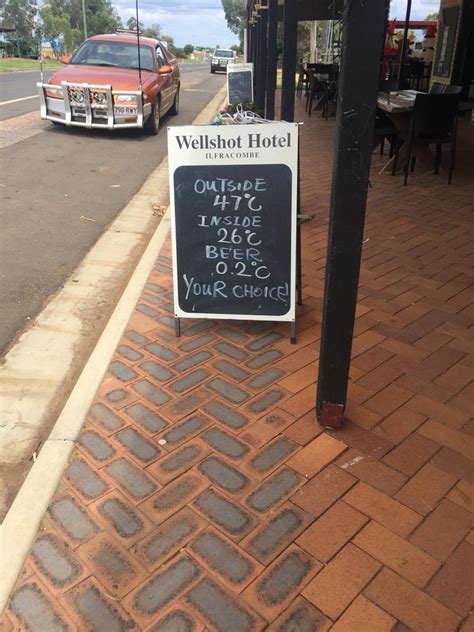 Wellshot Hotel
ILFRACOMBE
OUTSIDE
47°C
INSIDE
26°C
BEER
0.2°C
YOUR CHOICE!